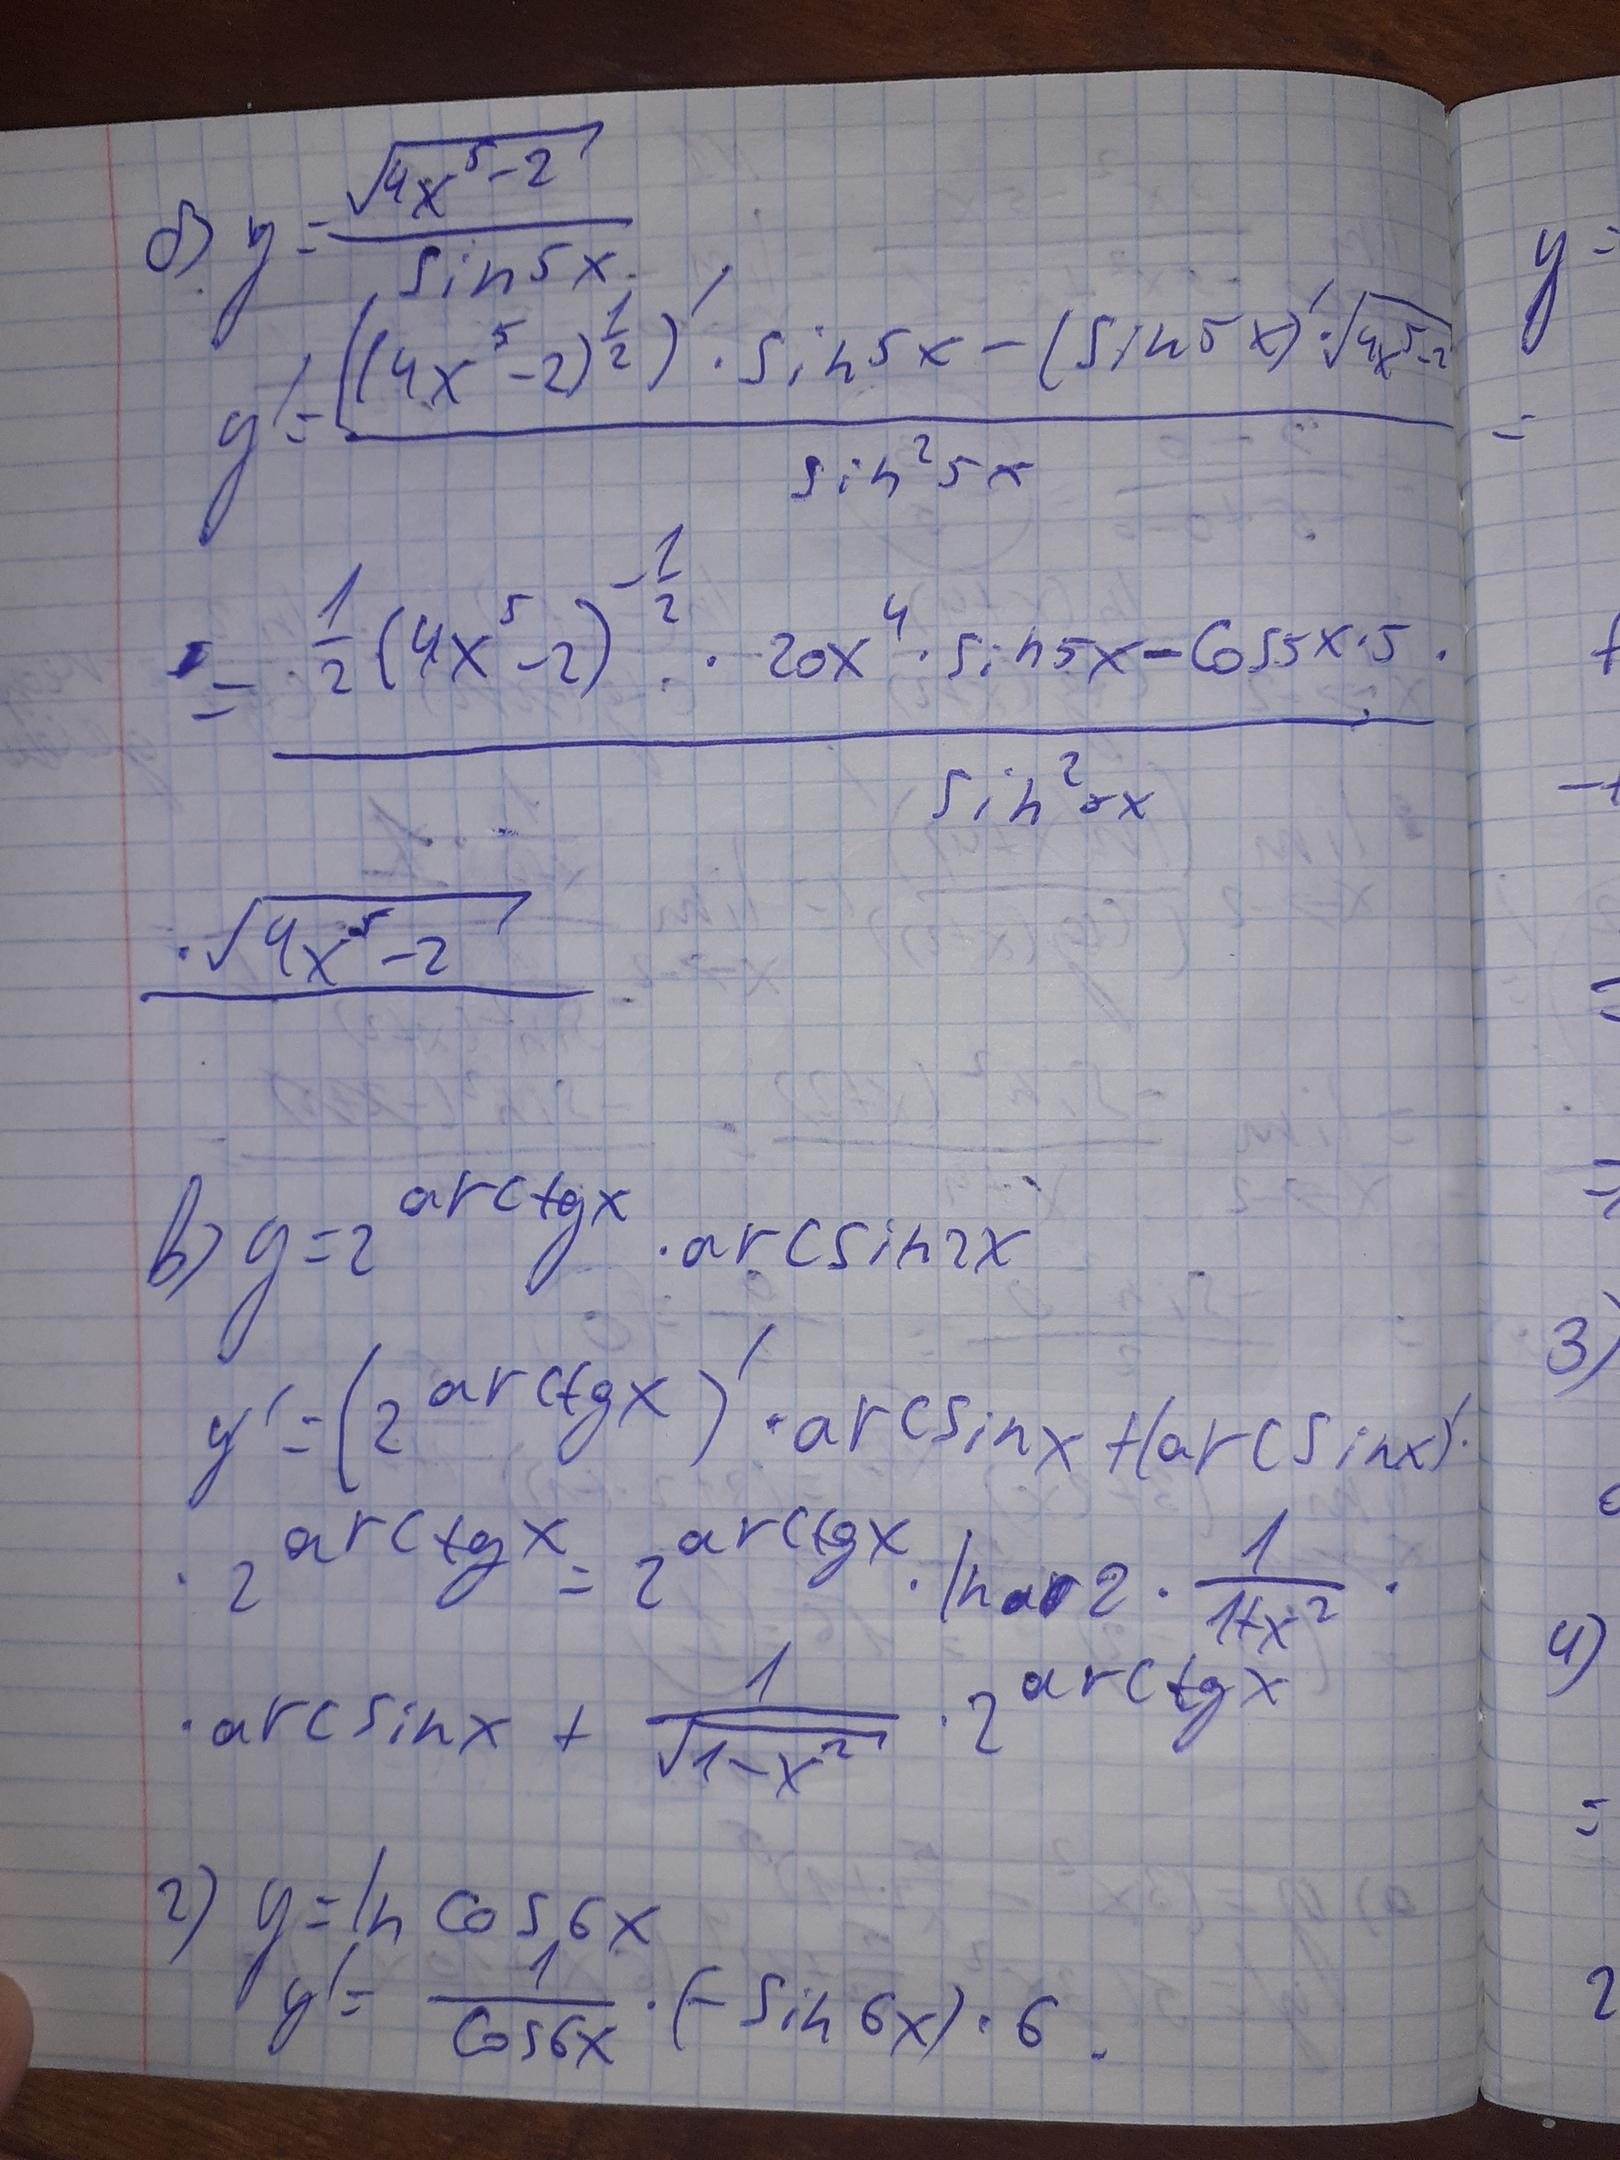 б) y = √(4x⁵-2) / sin5x
y' = ((4x⁵-2)^(1/2))' · sin5x - (sin5x)' · √(4x⁵-2) / sin²5x
= 1/2 (4x⁵-2)^(-1/2) · 20x⁴ · sin5x - cos5x·5 · / sin²5x
· √(4x⁵-2)
в) y = 2^(arctgx) · arcsin2x
y' = (2^(arctgx))' · arcsinx + (arcsinx)' ·
· 2^(arctgx) = 2^(arctgx) · ln 2 · 1/(1+x²) ·
· arcsinx + 1/√(1-x²) · 2^(arctgx)
г) y = ln cos6x
y' = 1/cos6x · (-sin6x) · 6.
y =
=
3)
4)
=
2